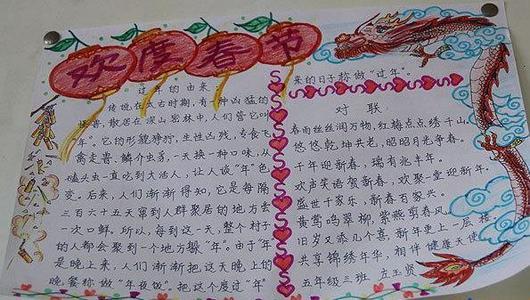 欢度春节
过年的由来
传说在太古时期,有一种凶猛的
怪兽,散居在深山密林中,人们管它叫
“年”。它的形貌狰狞,生性凶残,专食飞
禽走兽、鳞介虫豸,一天换一种口味,从
磕头虫一直吃到大活人,让人谈“年”色
变。后来,人们渐渐得知,它是每隔
三百六十五天窜到人群聚居的地方去
一次口鲜。所以,每到这一天,整个村子
的人都会聚到一个地方躲“年”。由于“年”
是晚上来,人们渐渐把这天晚上的
晚餐称做“年夜饭”。把这个度过“年”
来的日子称做“过年”。
对联
春雨丝丝润万物,红梅点点绣千山。
悠悠乾坤共老,昭昭日月争春。
千年迎新春,瑞有兆丰年。
欢声笑语贺新春,欢聚一堂迎新年。
盛世千家乐,新春百家兴。
黄莺鸣翠柳,紫燕剪春风。
旧岁又添几个喜,新年更上一层楼
共享锦绣年华,相伴健康天使
五年级三班